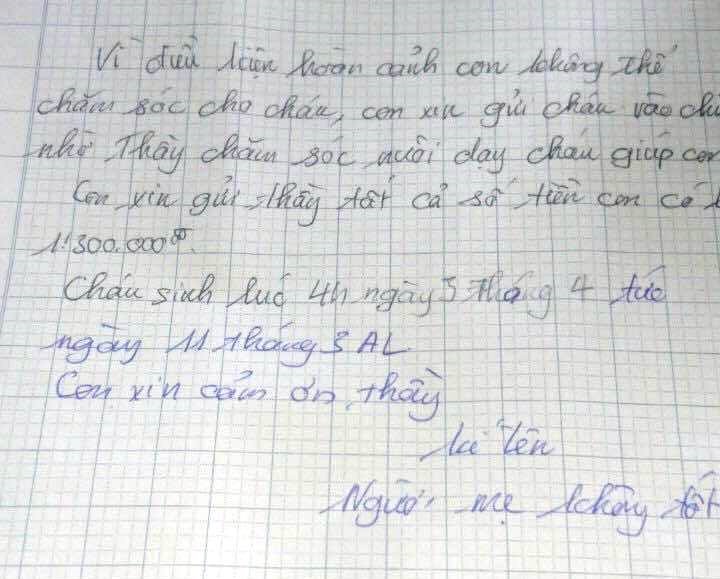 Vì điều kiện hoàn cảnh con không thể
chăm sóc cho cháu, con xin gửi cháu vào ch
nhờ Thầy chăm sóc nuôi dạy cháu giúp con
Con xin gửi thầy tất cả số tiền con có l
1.300.000
Cháu sinh lúc 4h ngày 5 tháng 4 tức
ngày 11 tháng 3 AL
Con xin cảm ơn thầy
kí tên
Người mẹ không tốt